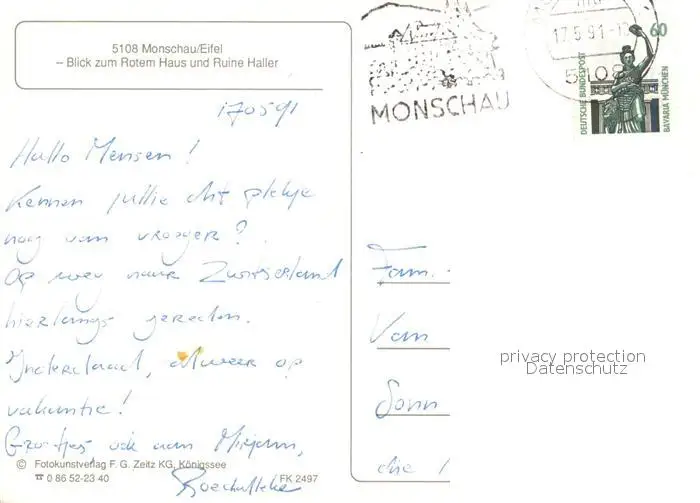 5108 Monschau/Eifel
– Blick zum Rotem Haus und Ruine Haller
170591
Hallo Mensen!
Kennen jullie dit plekje
nog van vroeger?
Op weg naar Zwitserland
hierlangs gereden.
Inderdaad, alweer op
vakantie!
Groetjes ook aan Mirjam,
© Fotokunstverlag F. G. Zeitz KG, Königssee
☎ 0 86 52-23 40
FK 2497
MONSCHAU
17.5.91-18
5108
60
DEUTSCHE BUNDESPOST
BAVARIA MÜNCHEN
Fam.
Van
Sonn
die
privacy protection
Datenschutz